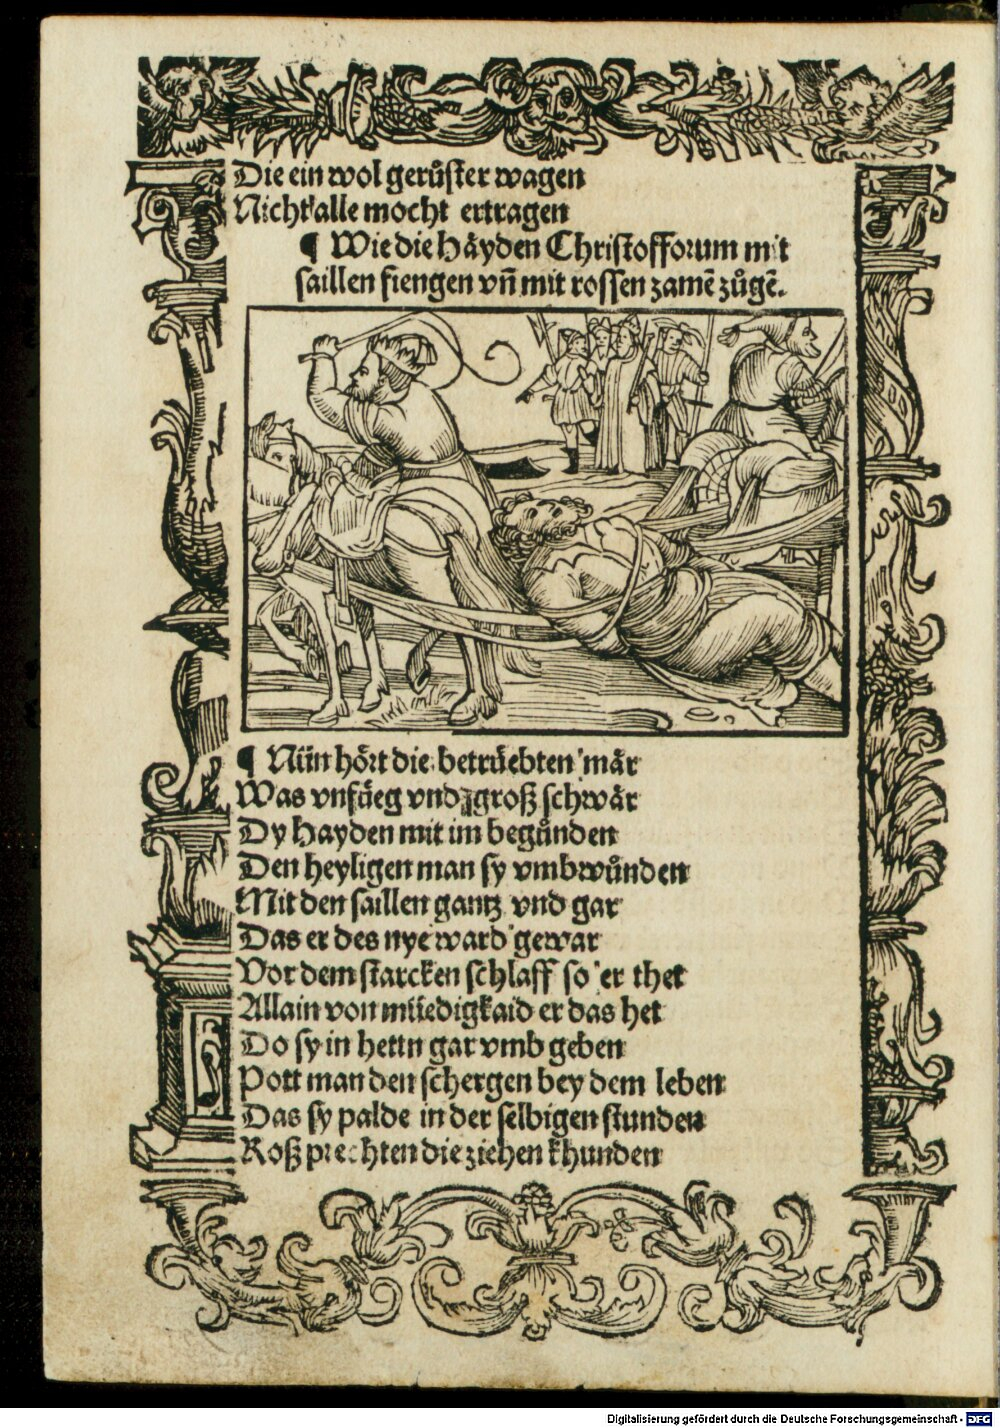 Die ein wol gerůſter wagen
Nicht alle mocht ertragen
¶ Wie die Häyden Chriſtofforum mit
ſaillen fiengen vn̄ mit roſſen zamē zůgē.
¶ Nün hört die betrüebten mär
Was vnfüeg vnd groß ſchwär
Dy Hayden mit im begůnden
Den heyligen man ſy vmbwůnden
Mit den ſaillen gantz vnd gar
Das er des nye ward gewar
Vor dem ſtarcken ſchlaff ſo er thet
Allain von müedigkaid er das het
Do ſy in hettn gar vmb geben
Pott man den ſchergen bey dem leben
Das ſy palde in der ſelbigen ſtunden
Roß prechten die ziehen khunden
Digitalisierung gefördert durch die Deutsche Forschungsgemeinschaft - DFG